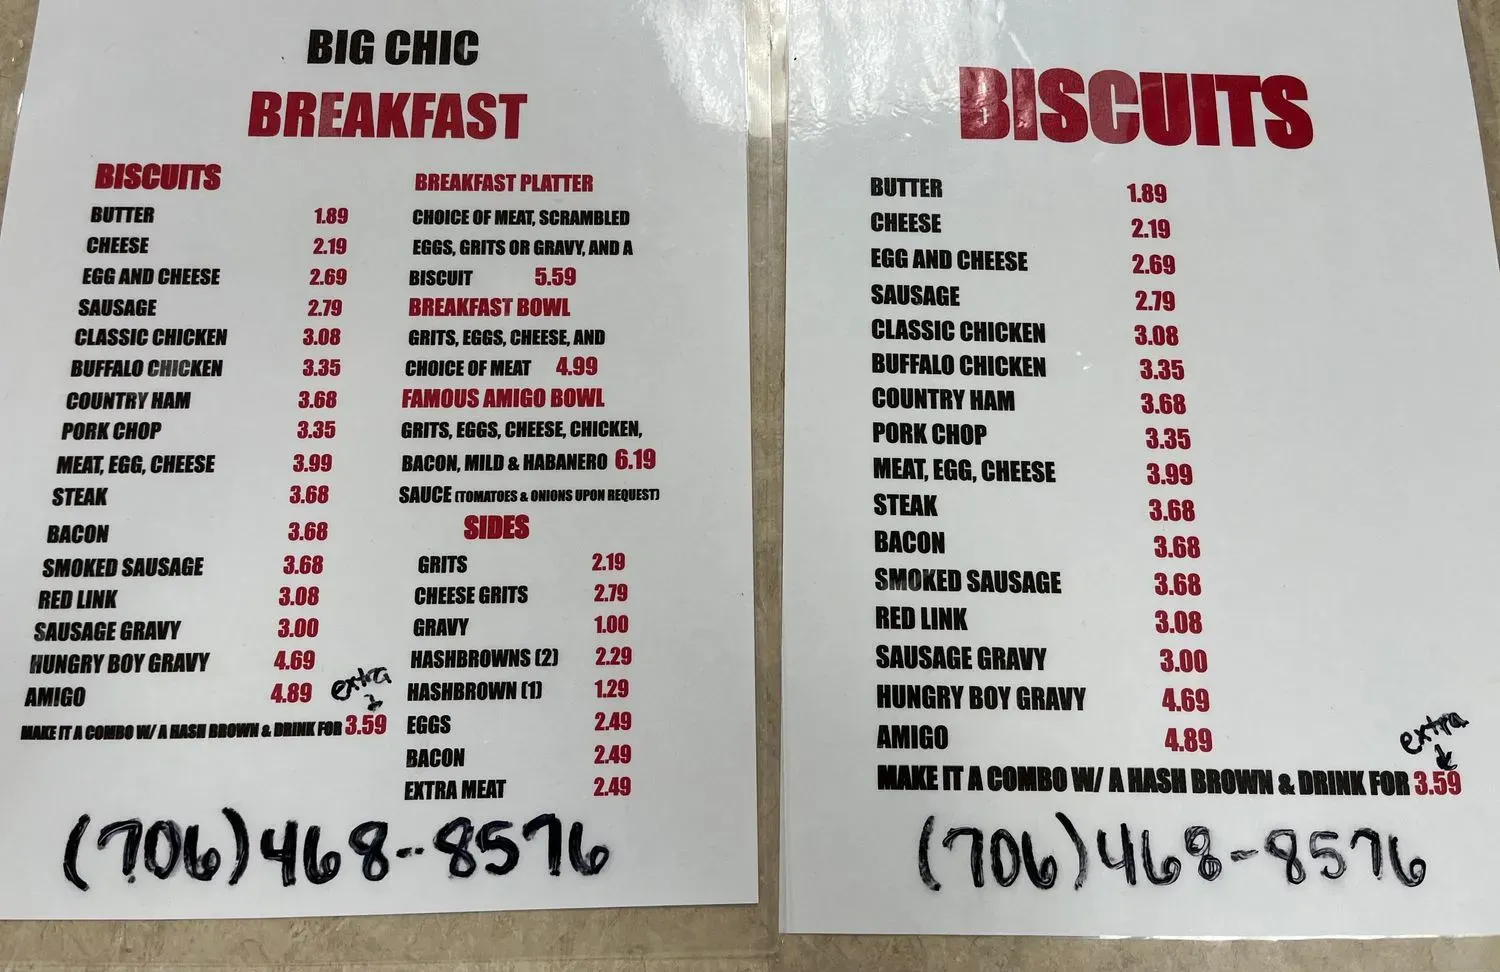 BIG CHIC
BREAKFAST
BISCUITS
BUTTER 1.89
CHEESE 2.19
EGG AND CHEESE 2.69
SAUSAGE 2.79
CLASSIC CHICKEN 3.08
BUFFALO CHICKEN 3.35
COUNTRY HAM 3.68
PORK CHOP 3.35
MEAT, EGG, CHEESE 3.99
STEAK 3.68
BACON 3.68
SMOKED SAUSAGE 3.68
RED LINK 3.08
SAUSAGE GRAVY 3.00
HUNGRY BOY GRAVY 4.69
AMIGO 4.89
extra
MAKE IT A COMBO W/ A HASH BROWN & DRINK FOR 3.59
BREAKFAST PLATTER
CHOICE OF MEAT, SCRAMBLED
EGGS, GRITS OR GRAVY, AND A
BISCUIT 5.59
BREAKFAST BOWL
GRITS, EGGS, CHEESE, AND
CHOICE OF MEAT 4.99
FAMOUS AMIGO BOWL
GRITS, EGGS, CHEESE, CHICKEN,
BACON, MILD & HABANERO 6.19
SAUCE (TOMATOES & ONIONS UPON REQUEST)
SIDES
GRITS 2.19
CHEESE GRITS 2.79
GRAVY 1.00
HASHBROWNS (2) 2.29
HASHBROWN (1) 1.29
EGGS 2.49
BACON 2.49
EXTRA MEAT 2.49
(706)468-8576
BISCUITS
BUTTER 1.89
CHEESE 2.19
EGG AND CHEESE 2.69
SAUSAGE 2.79
CLASSIC CHICKEN 3.08
BUFFALO CHICKEN 3.35
COUNTRY HAM 3.68
PORK CHOP 3.35
MEAT, EGG, CHEESE 3.99
STEAK 3.68
BACON 3.68
SMOKED SAUSAGE 3.68
RED LINK 3.08
SAUSAGE GRAVY 3.00
HUNGRY BOY GRAVY 4.69
AMIGO 4.89
extra
MAKE IT A COMBO W/ A HASH BROWN & DRINK FOR 3.59
(706)468-8576